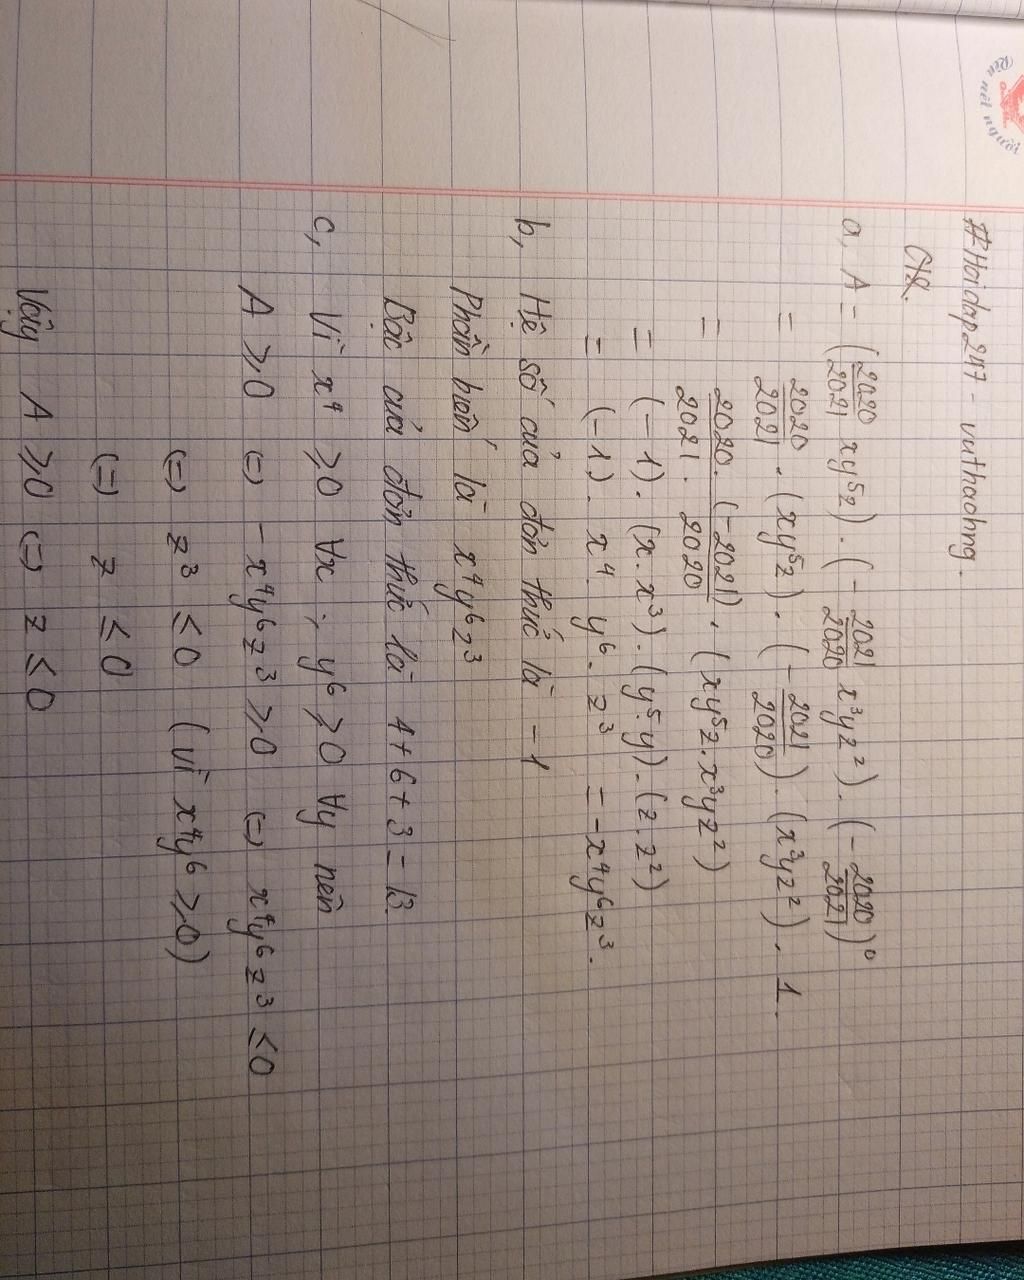 Rèn nét người
#Hoidap247 - vuthaohng.
a, A = (2020/2021 xy⁵z) . (- 2021/2020 x³yz²) . (- 2020/2021)⁰
= 2020/2021 . (xy⁵z) . (- 2021/2020) . (x³yz²) . 1.
= 2020 . (-2021)/2021 . 2020 . (xy⁵z . x³yz²)
= (-1) . (x . x³) . (y⁵.y) . (z . z²)
= (-1) . x⁴ . y⁶ . z³ = -x⁴y⁶z³.
b, Hệ số của đơn thức là -1
Phần biến là x⁴y⁶z³
Bậc của đơn thức là 4 + 6 + 3 = 13.
c, Vì x⁴ ≥ 0 ∀x ; y⁶ ≥ 0 ∀y nên
A ≥ 0 (=) -x⁴y⁶z³ ≥ 0 (=) x⁴y⁶z³ ≤ 0
(=) z³ ≤ 0 (vì x⁴y⁶ ≥ 0)
(=) z ≤ 0
Vậy A ≥ 0 (=) z ≤ 0